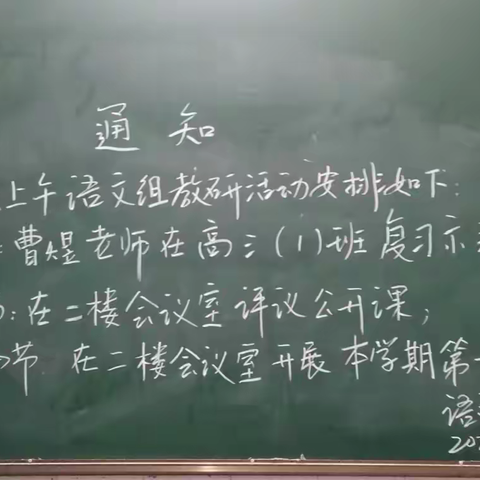 通知
上午语文组教研活动安排如下：
曹煜老师在高三（1）班复习示
：在二楼会议室评议公开课；
节 在二楼会议室开展本学期第
语
202